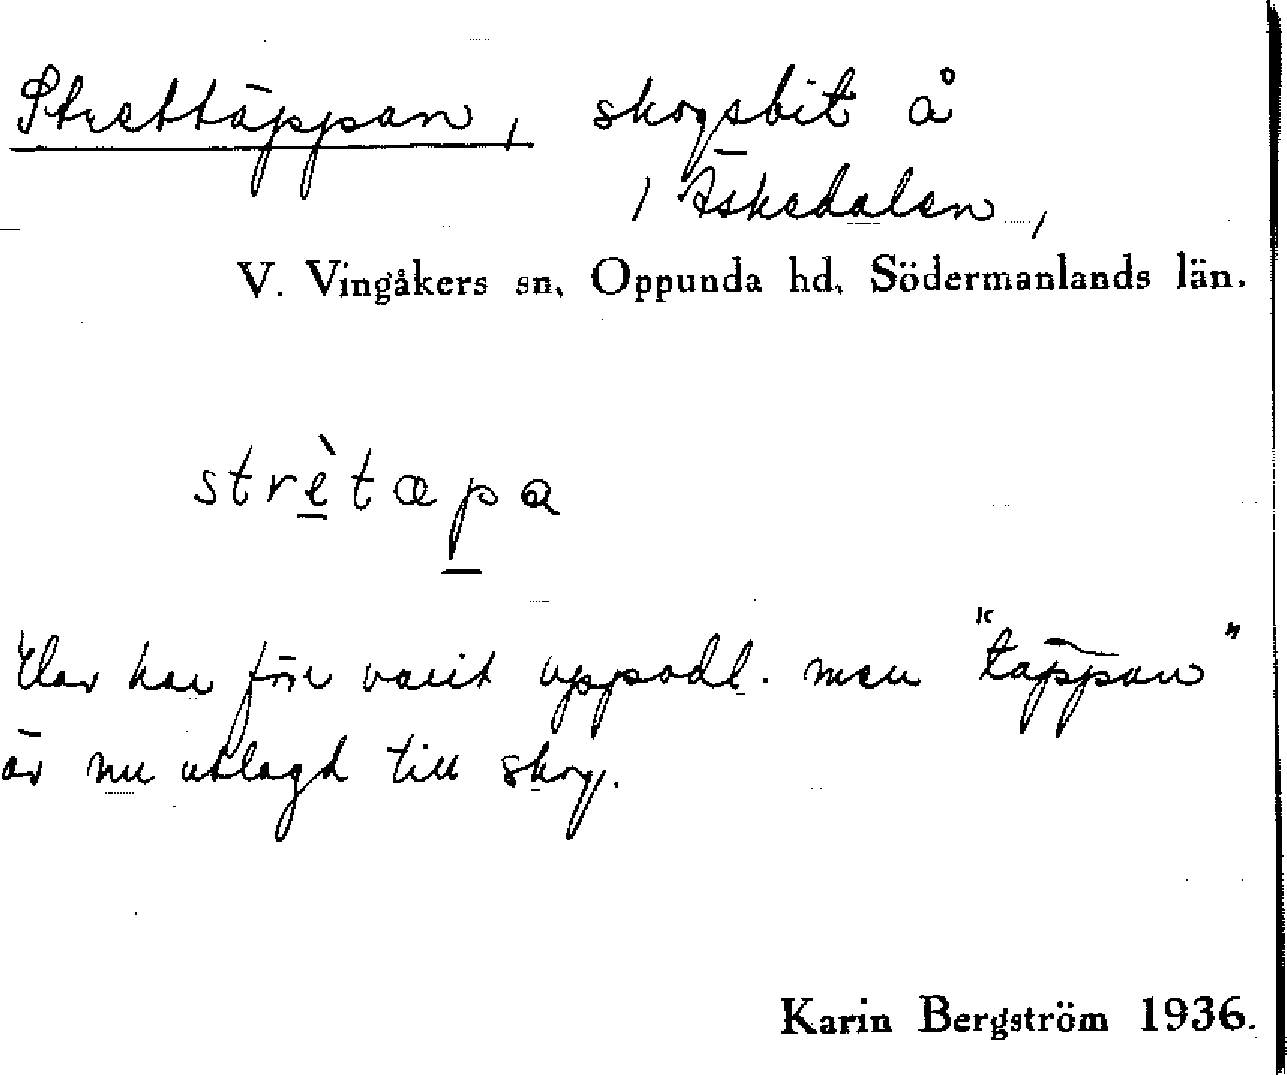 Strettäppan, skogsbit å
/ Äskedalen,
V. Vingåkers sn, Oppunda hd, Södermanlands län.
strètæpa
har förr varit uppodl. men "täppan"
är nu utlagd till skog.
Karin Bergström 1936.